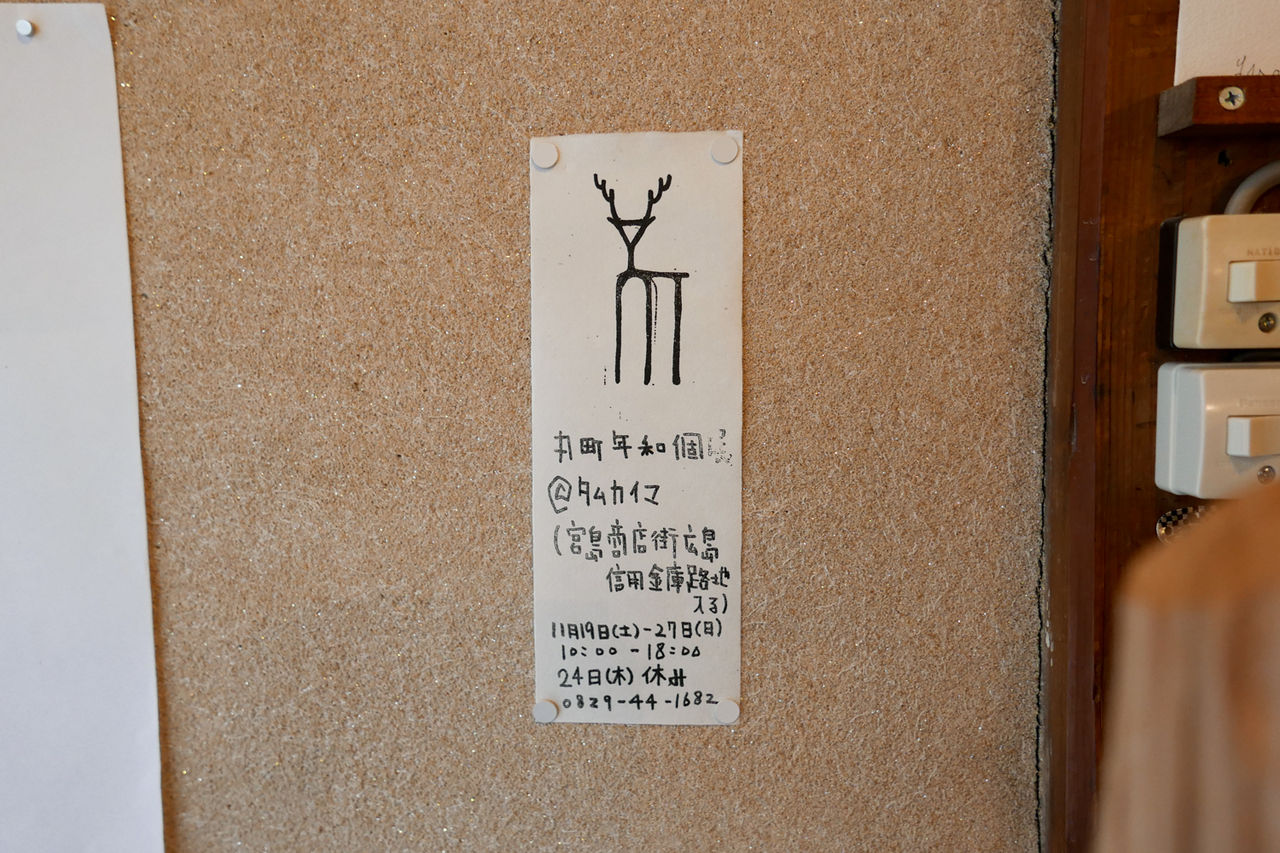 町年和個展
@タムカイマ
(宮島商店街広島
信用金庫路地
入る)
11月19日(土)-27日(日)
10:00-18:00
24日(木)休み
0829-44-1682